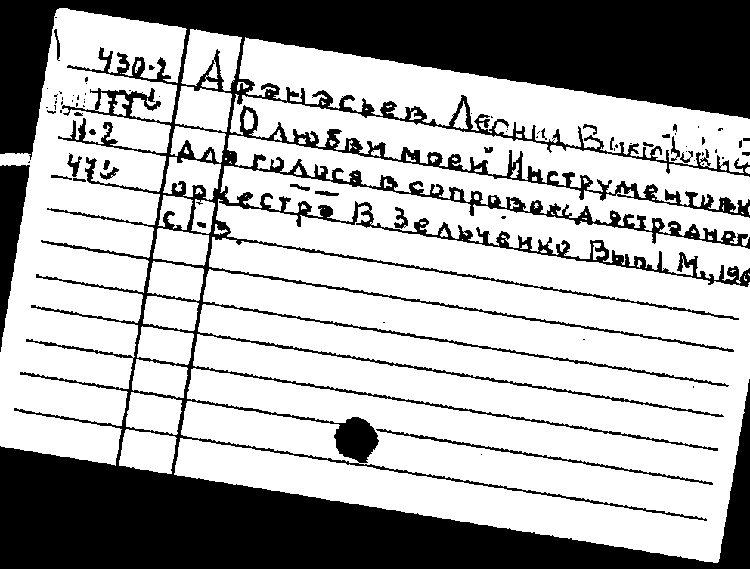 430-2 Афанасьев, Леонид Викторович
177
II-2 О любви моей. Инструментовк
47 для голоса в сопровожд. эстрадного
оркестра В. Зельченко. Вып. 1. М., 196
с. 1-3.